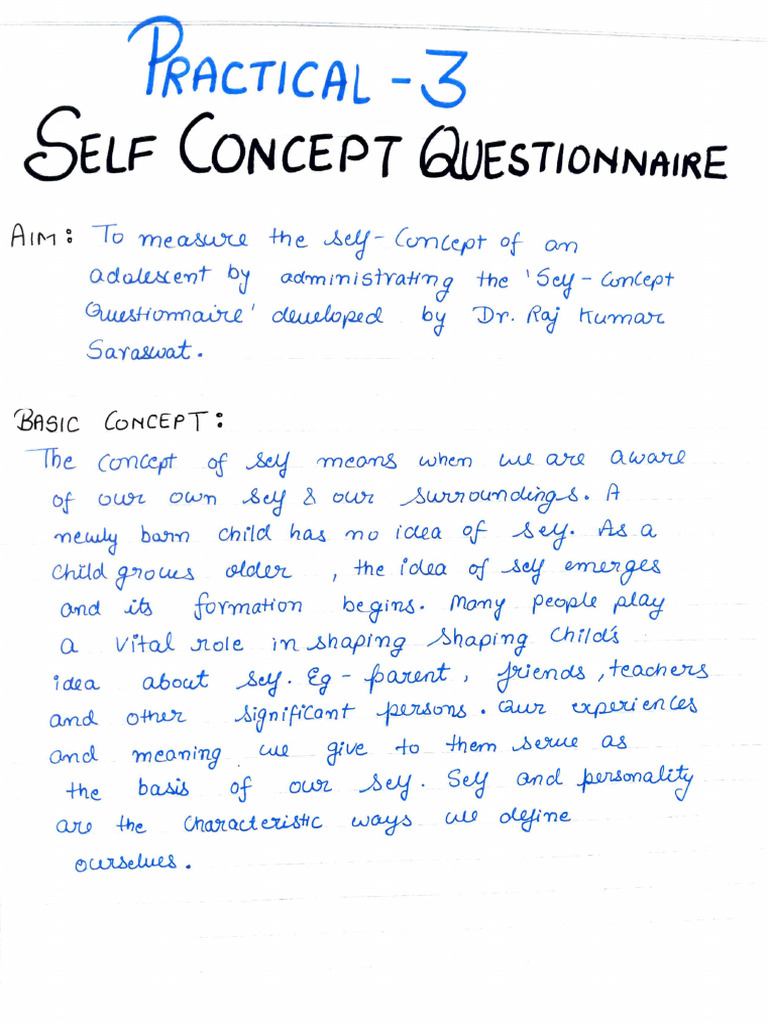 PRACTICAL - 3
SELF CONCEPT QUESTIONNAIRE
AIM: To measure the self-Concept of an
adolescent by administrating the 'Self-Concept
Questionnaire' developed by Dr. Raj Kumar
Saraswat.
BASIC CONCEPT:
The concept of self means when we are aware
of our own self & our surroundings. A
newly barn child has no idea of self. As a
child grows older, the idea of self emerges
and its formation begins. Many people play
a vital role in shaping shaping child's
idea about self. Eg - parent, friends, teachers
and other significant persons. Our experiences
and meaning we give to them serve as
the basis of our self. Self and personality
are the characteristic ways we define
ourselves.